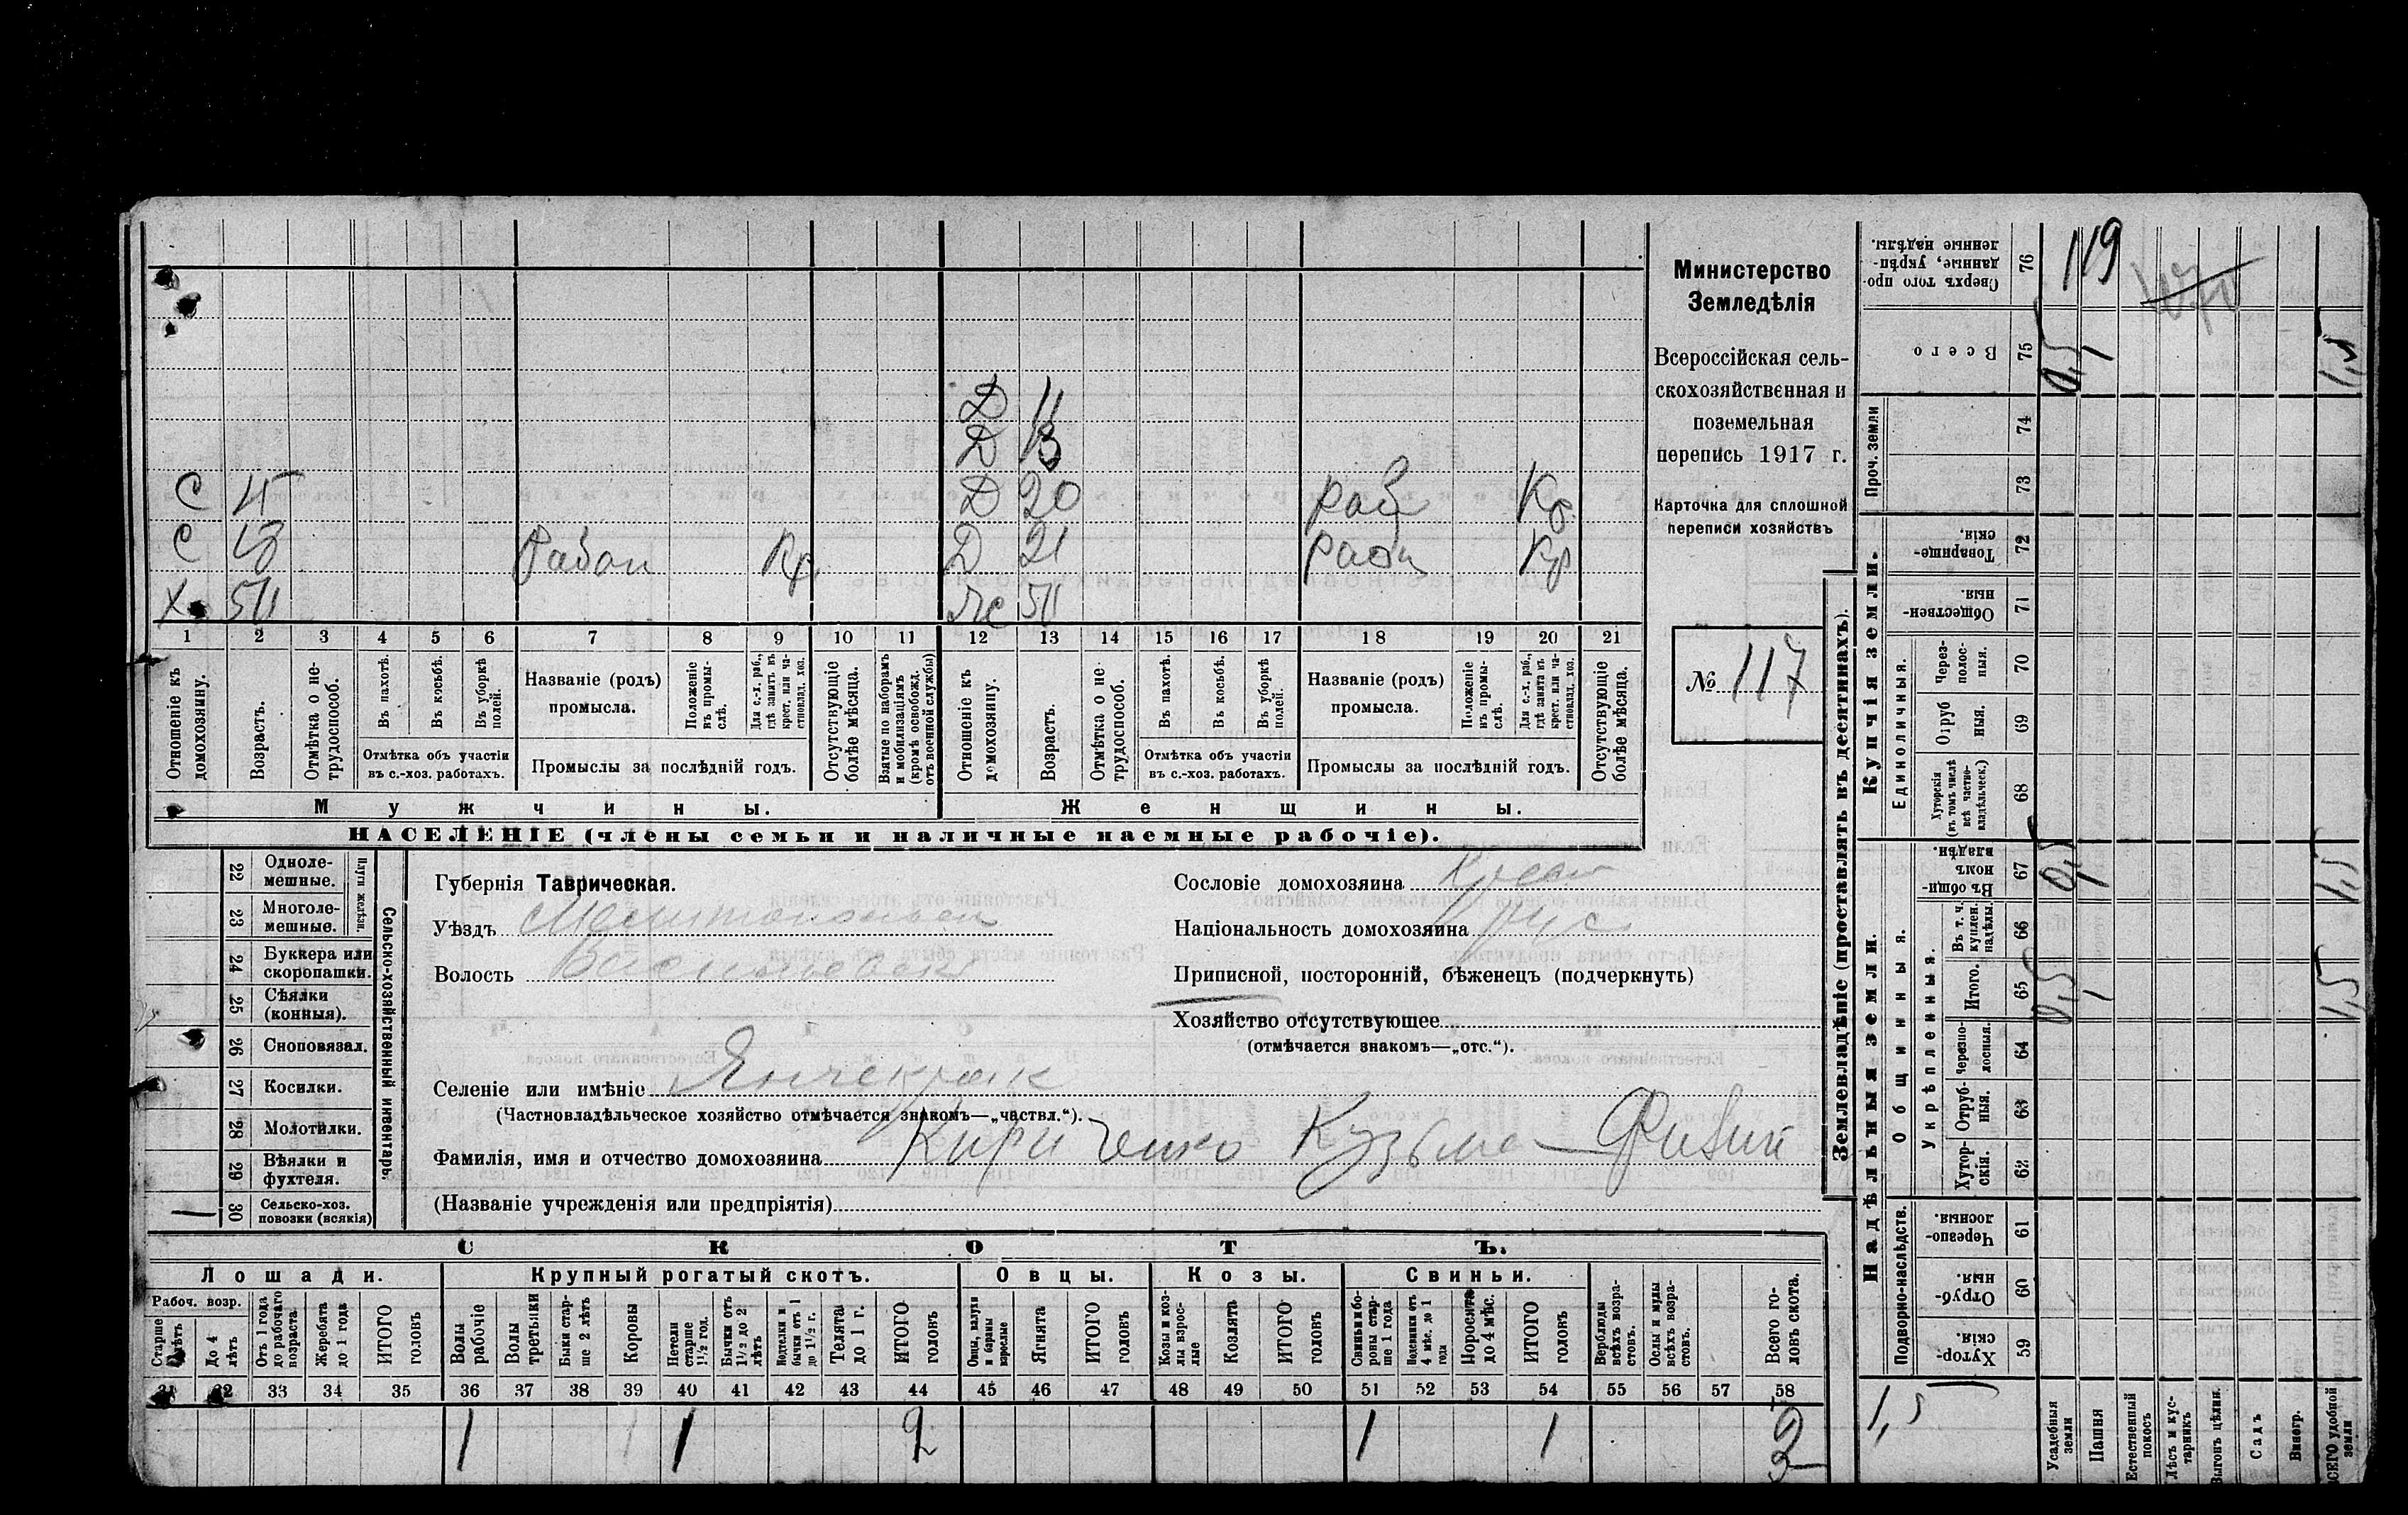 119
Д 11
Д 13
С Д 20 раб Кр
С Рабоч Кр Д 21 рабоч Кр
Х 50 Ж 50
1 2 3 4 5 6 7 8 9 10 11 12 13 14 15 16 17 18 19 20 21
Отношеніе къ домохозяину.
Возрастъ.
Отмѣтка о не-трудоспособ.
Въ пахотѣ.
Въ косьбѣ.
Въ уборкѣ полей.
Отмѣтка объ участіи въ с.-хоз. работахъ.
Названіе (родъ) промысла.
Положеніе въ промы-слѣ.
Для с.-х. раб., гдѣ занятъ въ крест. или ча-стновлад. хоз.
Промыслы за послѣдній годъ.
Отсутствующіе болѣе мѣсяца.
Взятые по наборамъ и мобилизаціямъ (кромѣ освобожд. отъ военной службы)
Отношеніе къ домохозяину.
Возрастъ.
Отмѣтка о не трудоспособ.
Въ пахотѣ.
Въ косьбѣ.
Въ уборкѣ полей.
Отмѣтка объ участіи въ с.-хоз. работахъ.
Названіе (родъ) промысла.
Положеніе въ промы-слѣ.
Для с.-х. раб., гдѣ занята въ крест. или ча-стновлад. хоз.
Промыслы за послѣдній годъ.
Отсутствующіе болѣе мѣсяца.
Мужчины.
Женщины.
НАСЕЛЕНІЕ (члены семьи и наличные наемные рабочіе).
Министерство
Земледѣлія
Всероссійская сель-
скохозяйственная и
поземельная
перепись 1917 г.
Карточка для сплошной
переписи хозяйствъ
№ 117
22 Одноле-мешные.
23 Многоле-мешные.
Плуги желѣзн.
24 Буккера или скоропашки.
25 Сѣялки (конныя).
26 Сноповязал.
27 Косилки.
28 Молотилки.
29 Вѣялки и фухтеля.
30 Сельско-хоз. повозки (всякія)
Сельско-хозяйственный инвентарь.
Губернія Таврическая.
Уѣздъ Мелитопольск
Волость Васильевск
Сословіе домохозяина Крест
Національность домохозяина рус
Приписной, посторонній, бѣженецъ (подчеркнуть)
Хозяйство отсутствующее
(отмѣчается знакомъ—„отс.“).
Селеніе или имѣніе Янчекрак
(Частновладѣльческое хозяйство отмѣчается знакомъ—„частвл.“).
Фамилія, имя и отчество домохозяина Кириченко Кузьма
(Названіе учрежденія или предпріятія)
СКОТЪ.
Лошади. Крупный рогатый скотъ. Овцы. Козы. Свиньи.
Рабоч. возр.
Старше 4 лѣтъ
До 4 лѣтъ
Отъ 1 года до рабочаго возраста.
Жеребята до 1 года
ИТОГО головъ
Волы рабочіе
Волы третьяки
Быки стар-ше 2 лѣтъ
Коровы
Нетели старше 1½ год.
Бычки отъ 1½ до 2 лѣтъ
Водтелки и бычки отъ 1 до 1½ г.
Телята до 1 г.
ИТОГО головъ
Овцы, валухи и бараны взрослые
Ягнята
ИТОГО головъ
Козы и коз-лы взрос-лые
Козлята
ИТОГО головъ
Свиньи и бо-ровы стар-ше 1 года
Подсвинки отъ 4 мѣс. до 1 года
Поросята до 4 мѣс.
ИТОГО головъ
Верблюды всѣхъ возра-стовъ.
Ослы и мулы всѣхъ возра-стовъ.
Всего го-ловъ скота.
31 32 33 34 35 36 37 38 39 40 41 42 43 44 45 46 47 48 49 50 51 52 53 54 55 56 57 58
1 1 1 2 1 1 3
Землевладѣніе (проставлять въ десятинахъ).
Надѣльныя земли.
Купчія земли.
Проч. земли
Подворно-наслѣдств.
Общинныя.
Укрѣпленныя.
Единоличныя.
Сверхъ того про-данные, укрѣп-ленные надѣлы. 76
Всего 75 0,5 1 1,5
74
73
Товарище-скія. 72
Обществен-ныя. 71
Черезполос-ныя. 70
Отруб ныя. 69
Хуторскія (въ томъ числѣ всѣ частно-владѣльческ.) 68
Въ общи-номъ владѣн. 67 0,5 1 1,5
Въ т. ч. куплен. надѣлы. 66
Итого. 65 0,5 1 1,5
Черезпо-лосныя. 64
Отруб-ныя. 63
Хутор-скія. 62
Черезпо-лосныя. 61
Отруб-ныя. 60
Хутор-скія. 59
1,5
Усадебныя земли
Пашня
Естественный покосъ
Лѣсъ и кус-тарникъ
Выгонъ цѣлин.
Садъ
Виногр.
ВСЕГО удобной земли